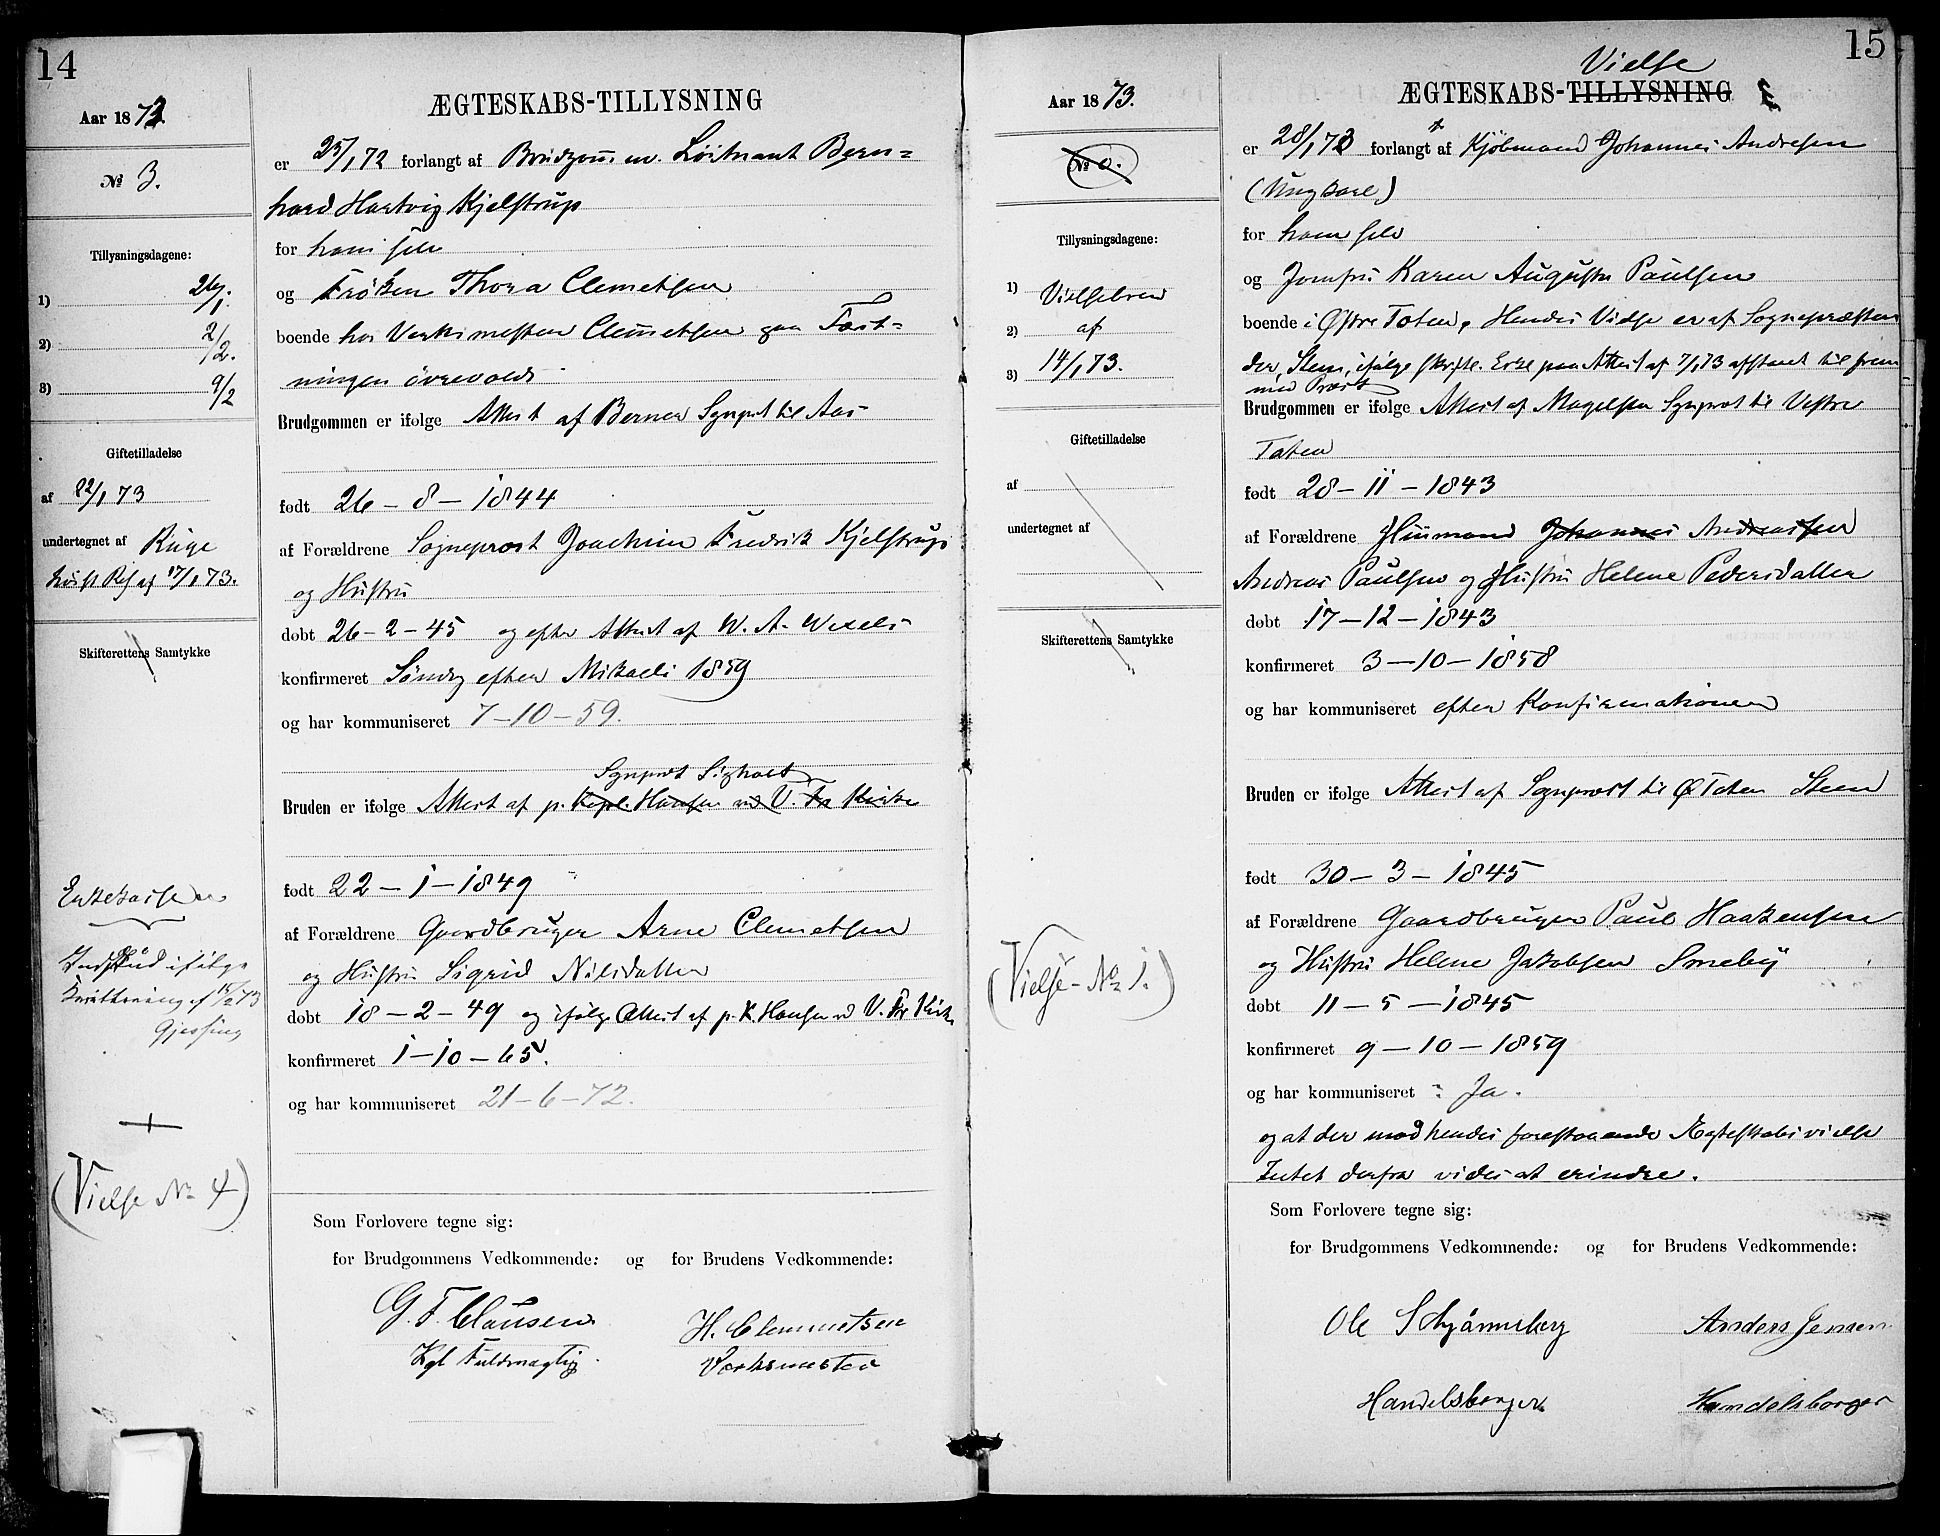 14
Aar 1873
№ 3.
Tillysningsdagene:
1) 26/1.
2) 2/2.
3) 9/2
Giftetilladelse
af 22/1 73
undertegnet af Ruge
17/1 73.
Skifterettens Samtykke
Enkekassen
Indskud ifølge
Kvittering af 73
Gjessing
(Vielse № 4)
ÆGTESKABS-TILLYSNING
er 25/1 72 forlangt af Brudgom m. Løitnant Bern=
hard Hartvig Kjelstrup
for ham selv
og Frøken Thora Clemetsen
boende hos Verksmester Clemetsen paa Fæst=
ningen
Brudgommen er ifølge Attest af Berner Sgnprst til Aas
født 26-8-1844
af Forældrene Sogneprest Joachim Fredrik Kjelstrup
og Hustru
døbt 26-2-45 og efter Attest af W. A. Wexels
konfirmeret Søndag efter Mikaeli 1859
og har kommuniseret 7-10-59.
Sgnprst Sigholt
Bruden er ifølge Attest af p. Kapl. Hansen ved V. Fr Kirke
født 22-1-1849
af Forældrene Gaardbruger Arne Clemetsen
og Hustru Sigrid Nilsdatter
døbt 18-2-49 og ifølge Attest af p. K. Hansen ved V. Fr Kirk
konfirmeret 1-10-65.
og har kommuniseret 21-6-72.
Som Forlovere tegne sig:
for Brudgommens Vedkommende: og for Brudens Vedkommende:
G. F. Clausen H. Clemmetsen
Kgl Fuldmægtig. Verksmester
15
Aar 1873.
№ 0.
Tillysningsdagene:
1) Vielsebrev
2) af
3) 14/1 73.
Giftetilladelse
af
undertegnet af
Skifterettens Samtykke
(Vielse-№ 1.)
Vielse
ÆGTESKABS-TILLYSNING
er 28/1 73 forlangt af Kjøbmand Johannes Andresen
(Ungkarl)
for ham selv
og Jomfru Karen Augusta Paulsen
boende i Østre Toten. Hendes Vidse er af Sognepræsten
der, Steen, ifølge Attest af 7/1 73 afstaaet til frem
med Præst
Brudgommen er ifølge Attest af Magelssen Sgnprst til Vestre
Toten
født 28-11-1843
af Forældrene Huusmand Johannes Andreassen
Andreas Paulsen og Hustru Helene Pedersdatter
døbt 17-12-1843
konfirmeret 3-10-1858
og har kommuniseret efter Konfirmationen
Bruden er ifølge Attest af Sognprest til Ø Toten Steen
født 30-3-1845
af Forældrene Gaardbruger Paul Haakensen
og Hustru Helene Jakobsen Smeby
døbt 11-5-1845
konfirmeret 9-10-1859
og har kommuniseret : Ja.
og at der mod hendes forestaaende Ægteskabs vielse
Intet derfra vides at erindre.
Som Forlovere tegne sig:
for Brudgommens Vedkommende: og for Brudens Vedkommende:
Ole Anders Jensen
Handelsborger Handelsborger